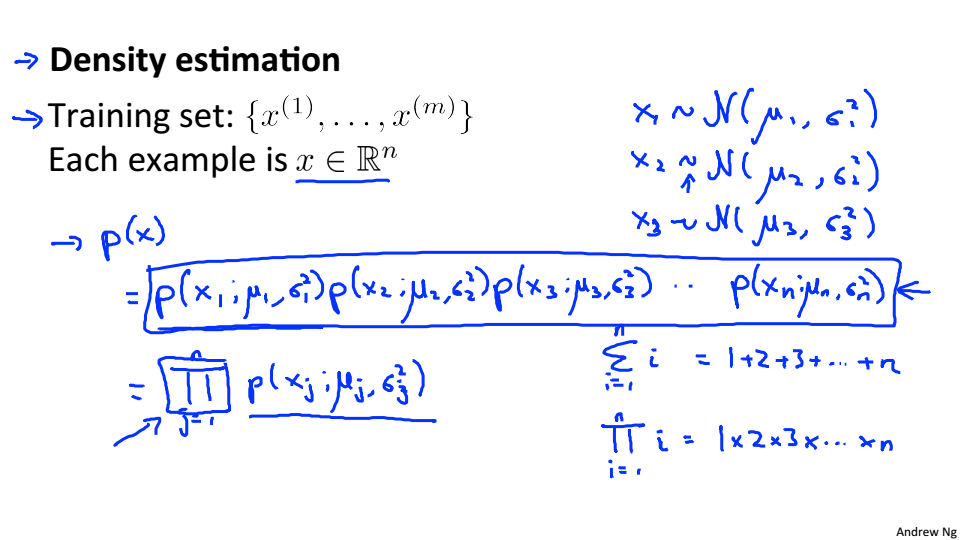 → Density estimation
→ Training set: {x^(1), . . . , x^(m)}
Each example is x ∈ ℝ^n
x₁ ~ N(μ₁, σ₁²)
x₂ ~ N(μ₂, σ₂²)
↑
x₃ ~ N(μ₃, σ₃²)
→ p(x)
= p(x₁; μ₁, σ₁²) p(x₂; μ₂, σ₂²) p(x₃; μ₃, σ₃²) ··· p(xₙ; μₙ, σₙ²) ←
= ∏_{j=1}^{n} p(x_j; μ_j, σ_j²)
∑_{i=1}^{n} i = 1+2+3+...+n
∏_{i=1}^{n} i = 1×2×3×...×n
Andrew Ng